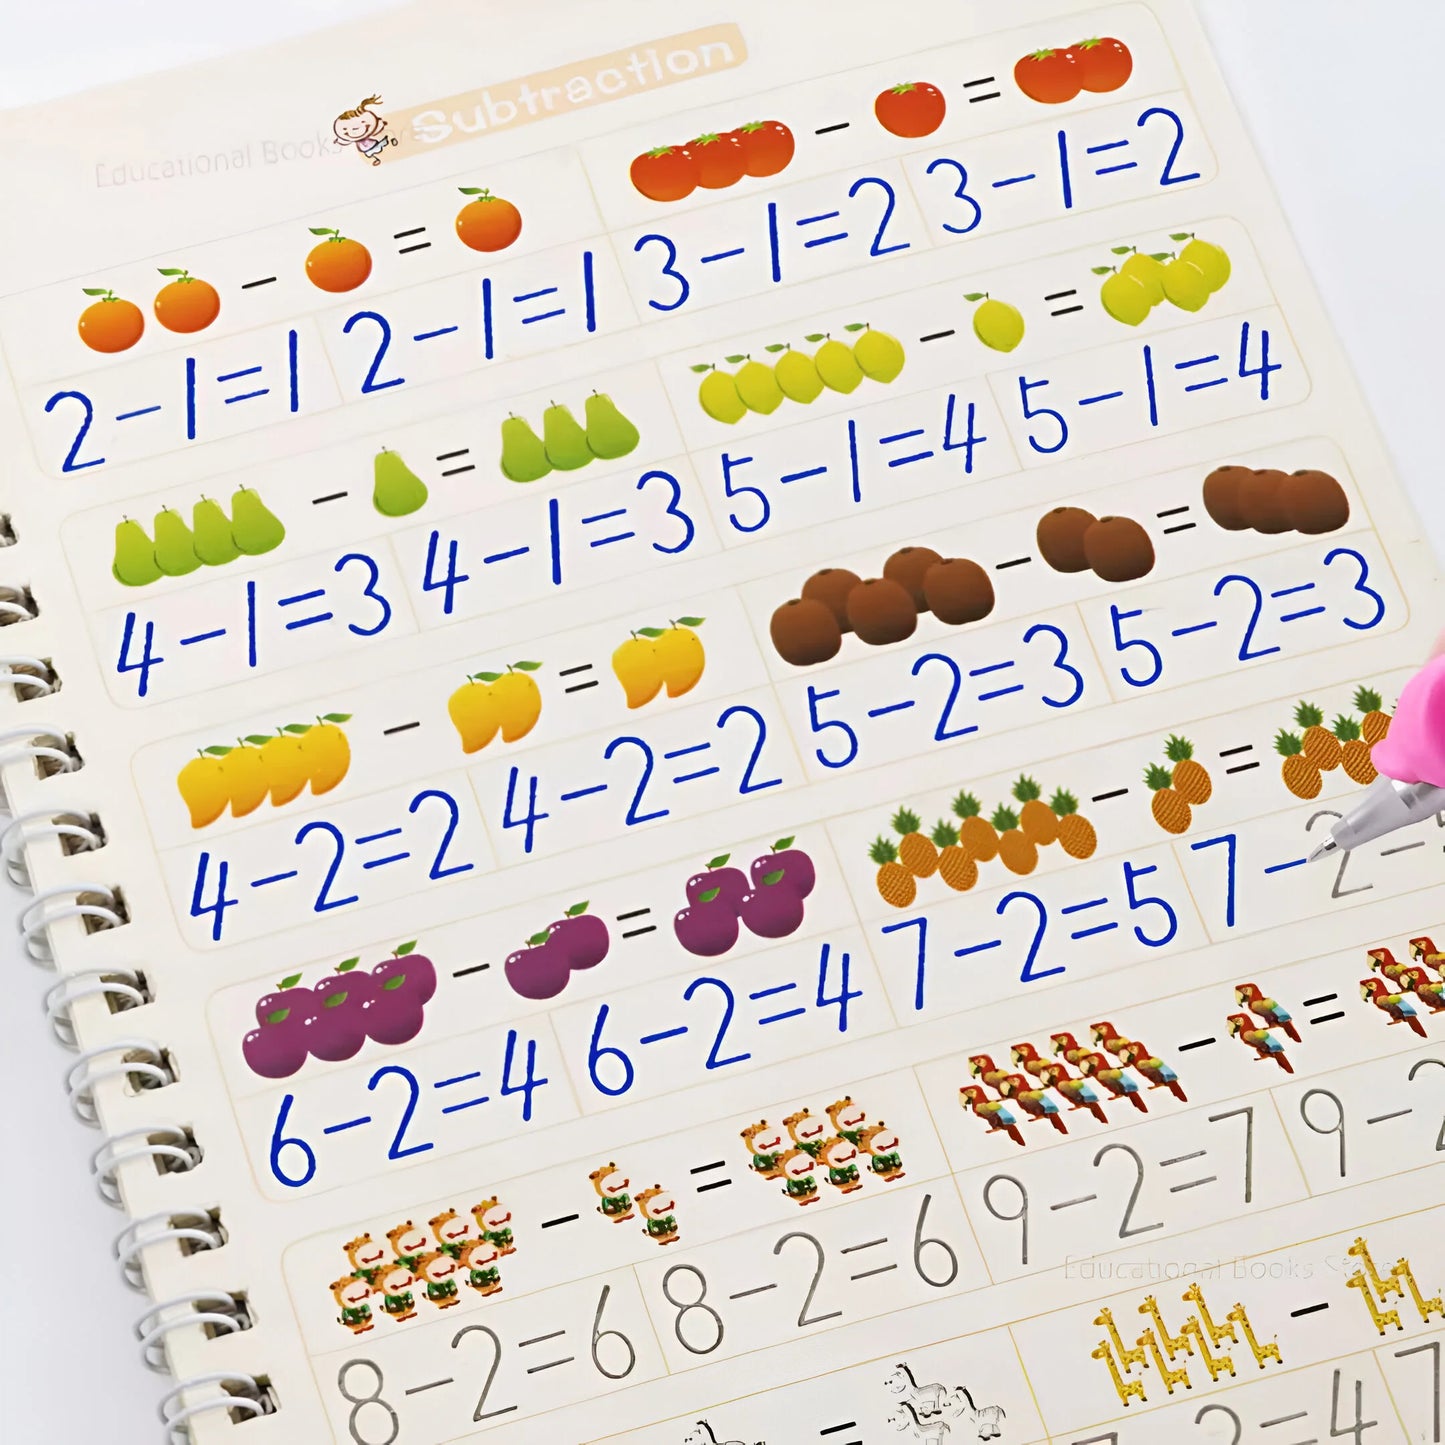 Educational Books Store
Subtraction
2-1=1 2-1=1
3-1=2 3-1=2
4-1=3 4-1=3
5-1=4 5-1=4
4-2=2 4-2=2
5-2=3 5-2=3
6-2=4 6-2=4
7-2=5 7-2=
8-2=6 8-2=6
9-2=7 9-2
Educational Books Store
7-3=4 7